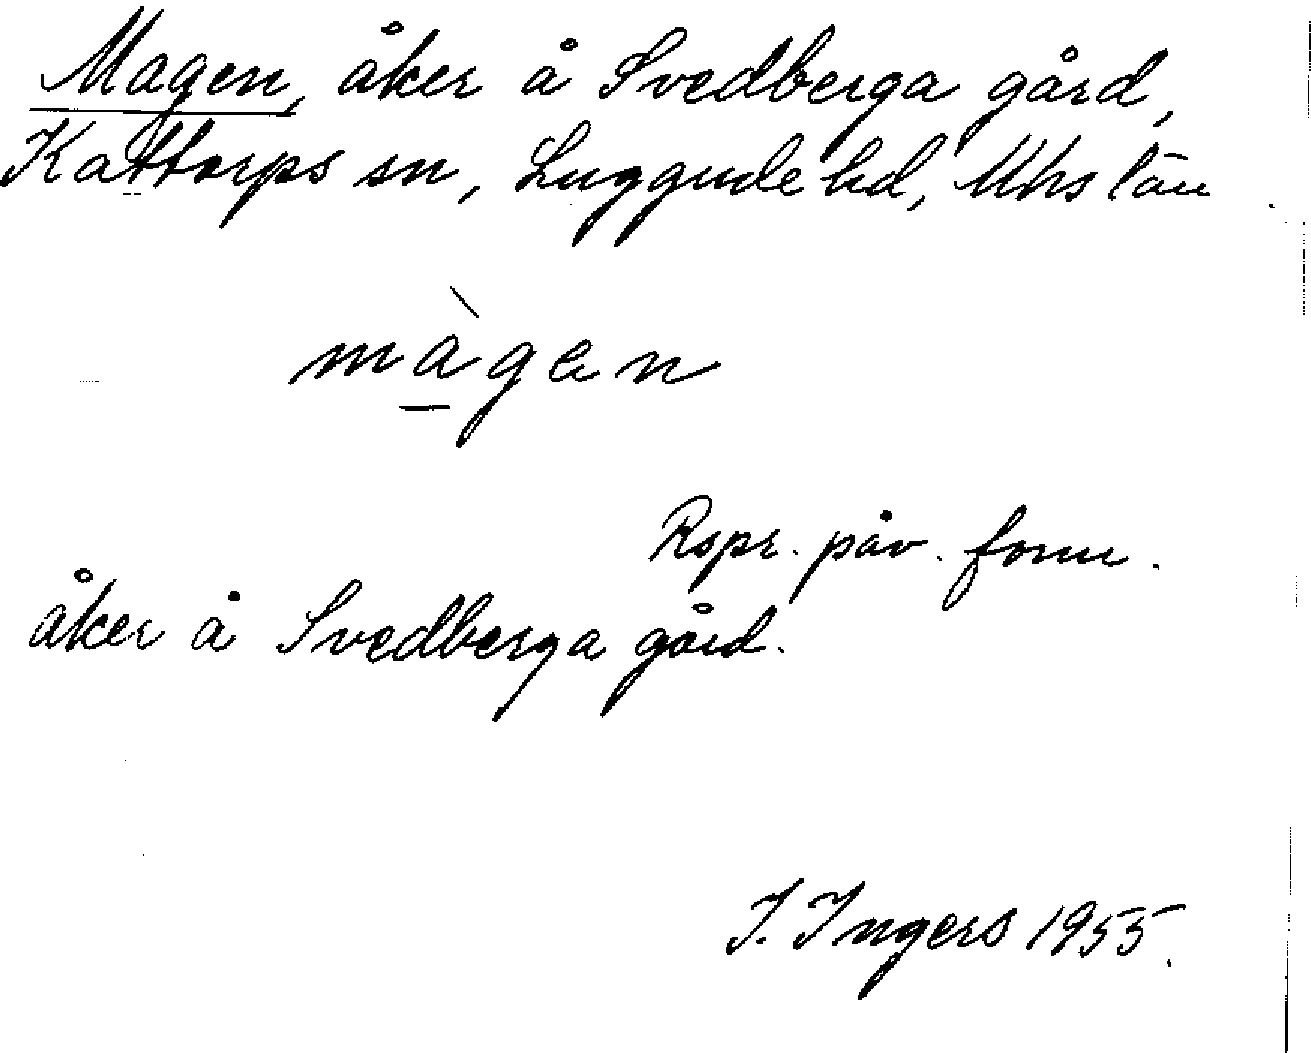 Magen, åker å Svedberga gård,
Kattorps sn, Luggude hd, Mhs län
màgen
Rspr. påv. form.
åker å Svedberga gård.
I. Ingers 1955.